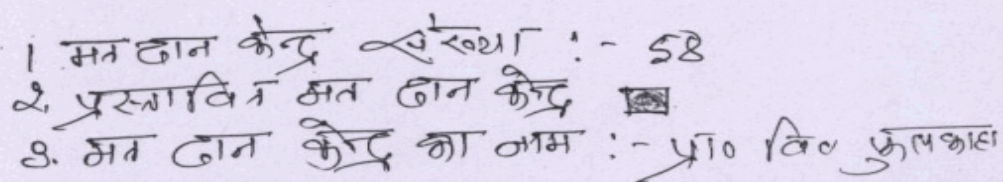 1 मतदान केन्द्र संख्या :- 58
2. प्रस्तावित मतदान केन्द्र
3. मतदान केन्द्र का नाम :- प्रा० वि० फुलकाहा